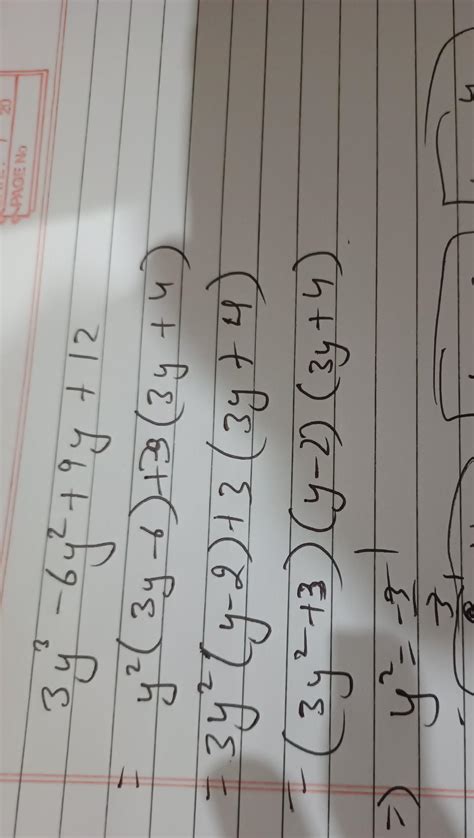 PAGE No
20
3y³ - 6y² + 9y + 12
= y²(3y - 6) + 3(3y + 4)
= 3y²(y - 2) + 3(3y + 4)
= (3y² + 3)(y - 2)(3y + 4)
⇒ y² = -3